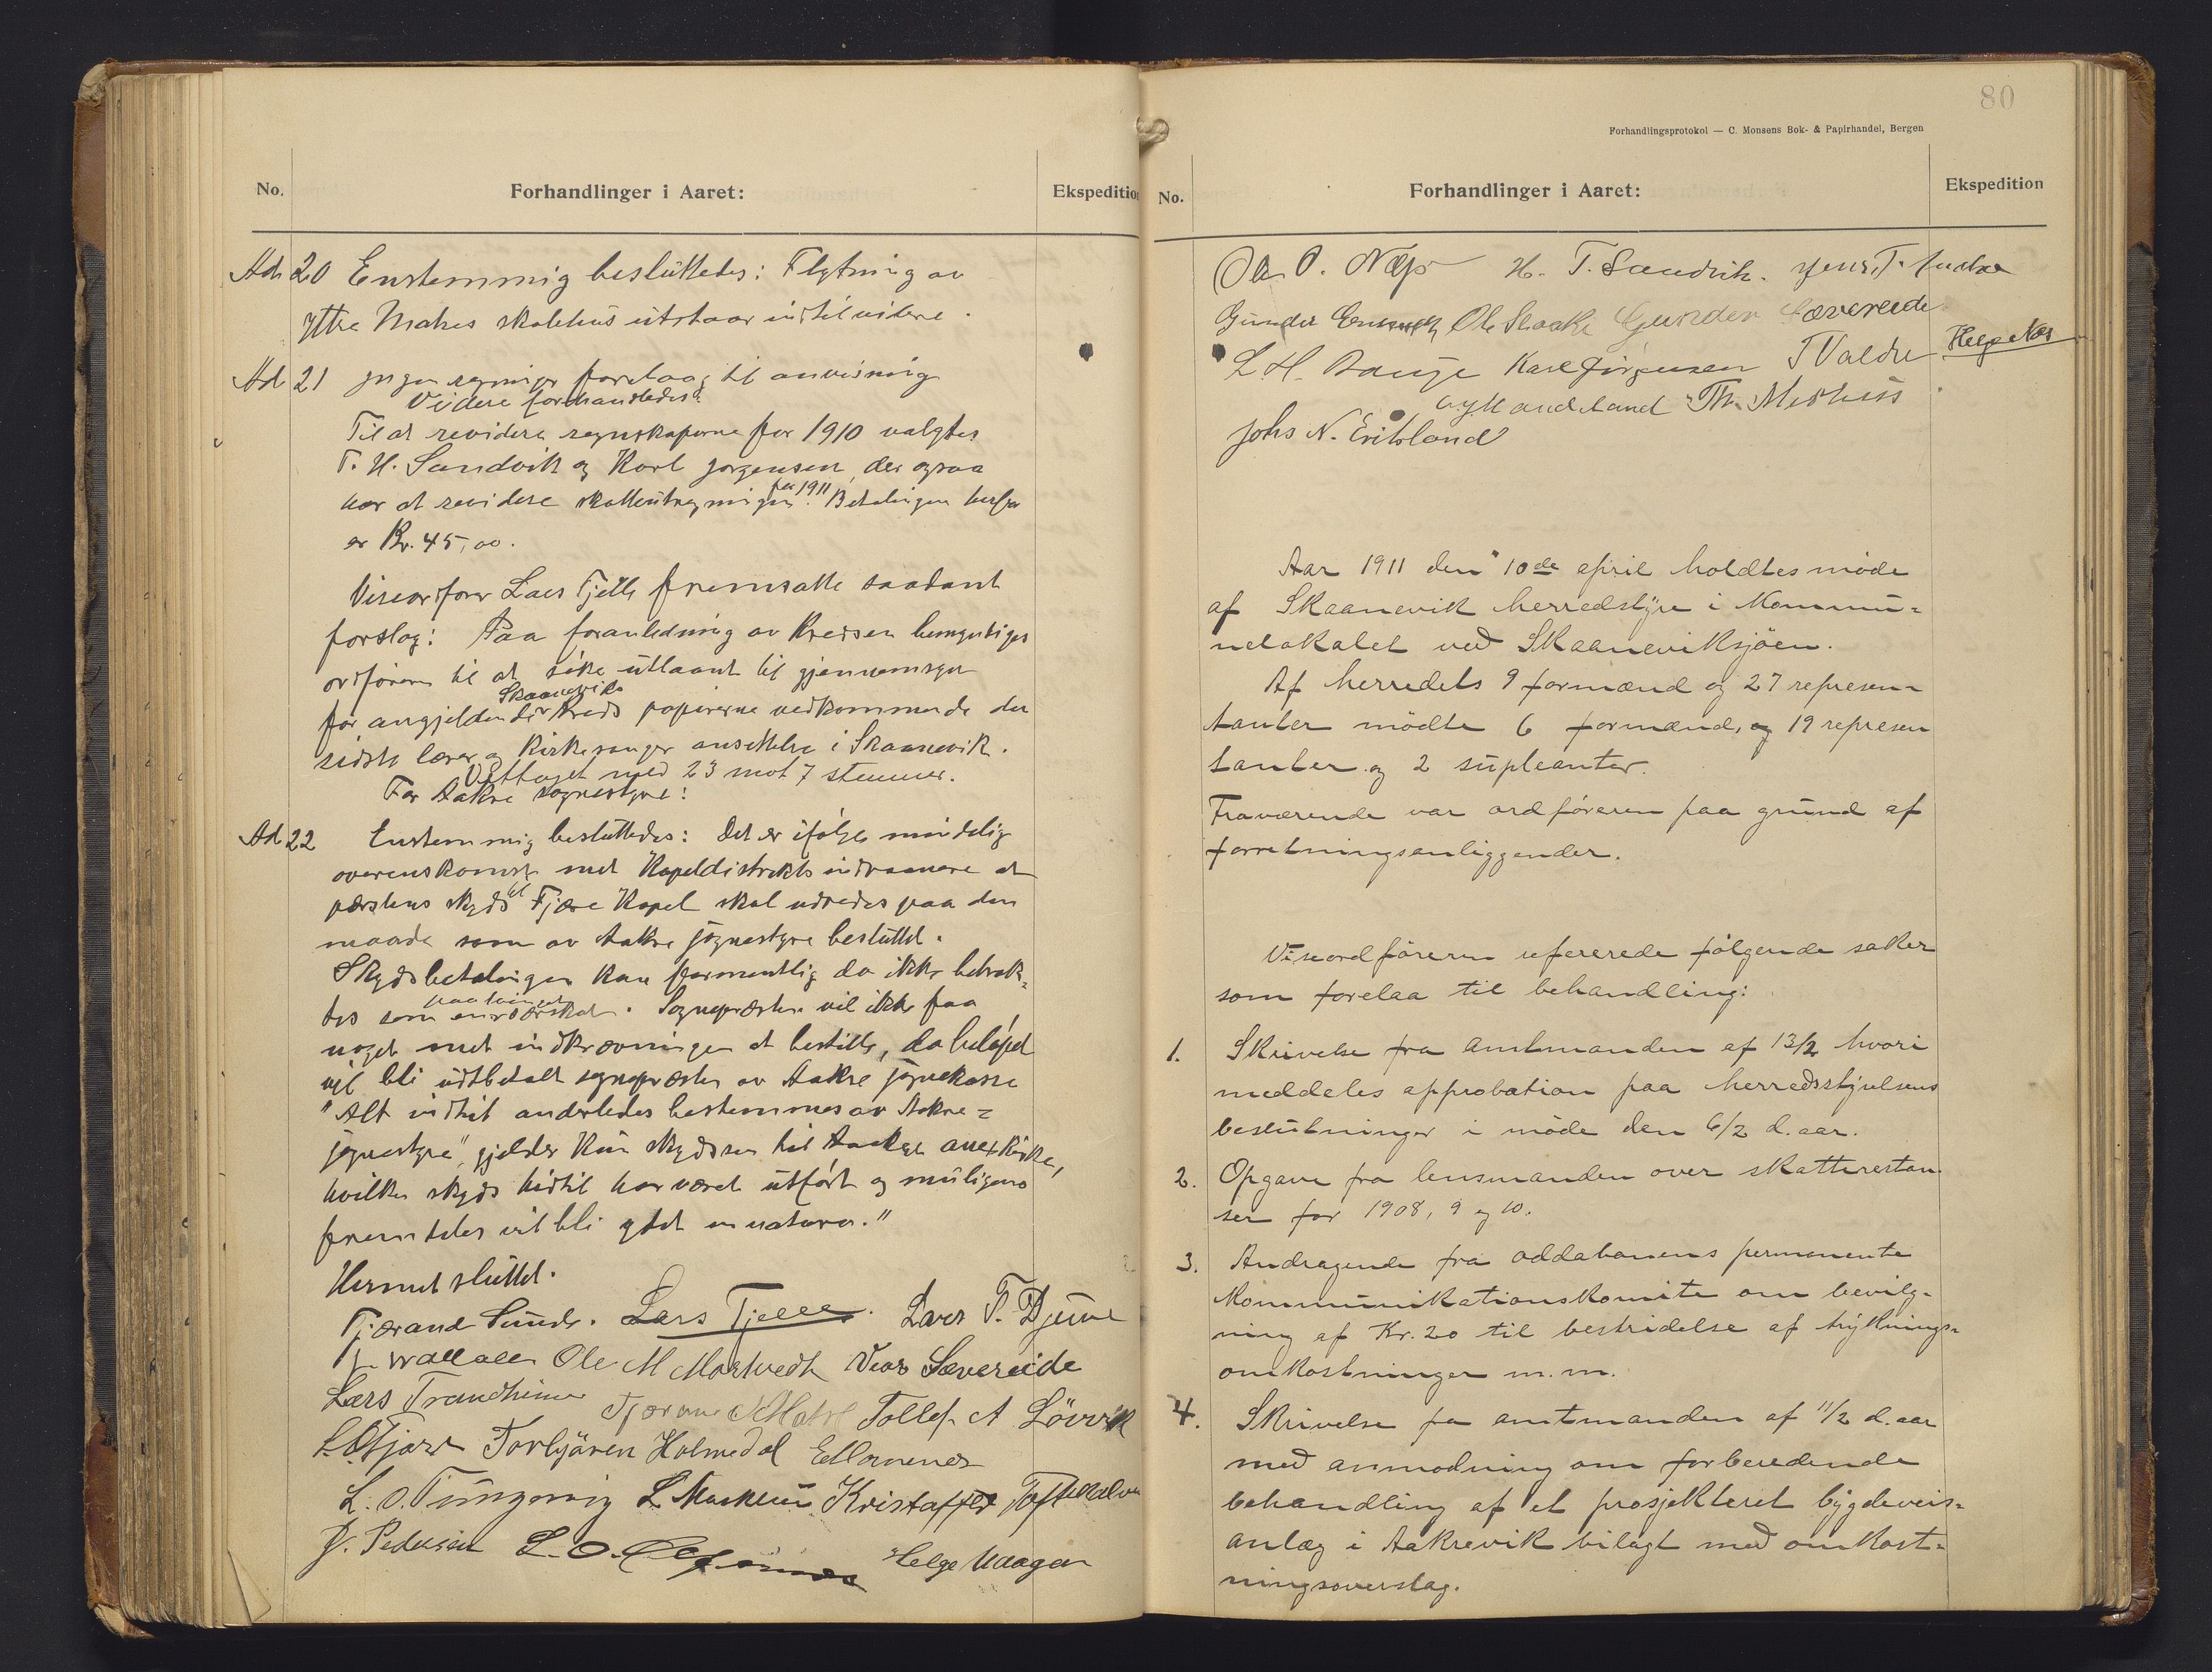 No.
Forhandlinger i Aaret:
Ekspedition
Ad 20 Enstemmig besluttedes: Flytning av
Ytre Matres skolehus utstaar indtil videre.
Ad 21 Ingen regninger forelaag til anvisning
Videre forhandledes:
Til at revidere regnskaperne for 1910 valgtes
T. H. Sandvik og Karl Jørgensen, der ogsaa
har at revidere skatteutregningen for 1911. Betalingen herfor
er Kr. 45,00.
Viseordfører Lars Fjelle fremsatte saadant
forslag: Paa foranledning av Kredsen bemyndiges
ordføreren til at søke utlaant til gjennemsyn
for angjeldende Skaanevik Kreds papirerne vedkommende den
sidste lærer og Kirkesanger ansettelse i Skaanevik.
Vedtaget med 23 mot 7 stemmer.
For Aakre sognestyre:
Ad 22 Enstemmig besluttedes: Det er ifølge mundtlig
overenskomst med Kapeldistriktets indvaanere at
prestens skyds til Fjære Kapel skal udredes paa den
maade som av Aakre sognestyre besluttet.
Skydsbetalingen kan formentlig da ikke betrak-
tes som paatvungen særskat. Sognepresten vil ikke faa
noget med indkrævningen at bestille, da beløpet
vil bli udbetalt sognepresten av Aakre sognekasse
"Alt indtil anderledes bestemmes av Aakre=
sognestyre", gjelder kun skydsen til Aakre anexkirke,
hvilken skyds hidtil har været utført og muligens
fremdeles vil bli ydet in natura."
Hermed sluttet.
Tjærand Sunde. Lars Fjelle. Lars T. Djuve
J. Wallalen Ole M Markvedt Vier Sævereide
Lars Trandheim Tjæran Matre Tollef A Løvvik
Torbjøren Holmedal
L. O. Tungesvig L Maskeim Kristoffer Toftekalven
J. Pedersen L. O. Helge Udaagen
80
Forhandlingsprotokol — C. Monsens Bok- & Papirhandel, Bergen
No.
Forhandlinger i Aaret:
Ekspedition
Ole O. Næs H. T. Sandvik. Jens T.
Gunder Ole Slaake Gunder Sævereide
L. H. Bauge Karl Jørgensen T Valdre Helge Næs
Th. Medhus
Johs N. Eriksland
Aar 1911 den 10de april holdtes møde
af Skaanevik herredstyre i Kommu-
nelokalet ved Skaaneviksjøen.
Af herredets 9 formænd og 27 represen-
tanter mødte 6 formænd, og 19 represen
tanter og 2 supleanter.
Fraværende var ordføreren paa grund af
forretningsanliggender.
Viseordføreren refererede følgende saker
som forelaa til behandling:
1. Skrivelse fra Amtmanden af 13/2 hvori
meddeles approbation paa herredsstyrelsens
beslutninger i møde den 6/2 d. aar.
2. Opgave fra lensmanden over skatterestan
ser for 1908, 9 og 10.
3. Andragende fra oddabanens permanente
Kommunikationskomite om bevilg-
ning af Kr. 20 til bestridelse af tryknings-
omkostninger m.m.
4. Skrivelse fra amtmanden af 11/2 d. aar
med anmodning om forberedende
behandling af et prosjekteret bygdeveis-
anlæg i Aakrevik bilagt med omkost-
ningsoverslag.